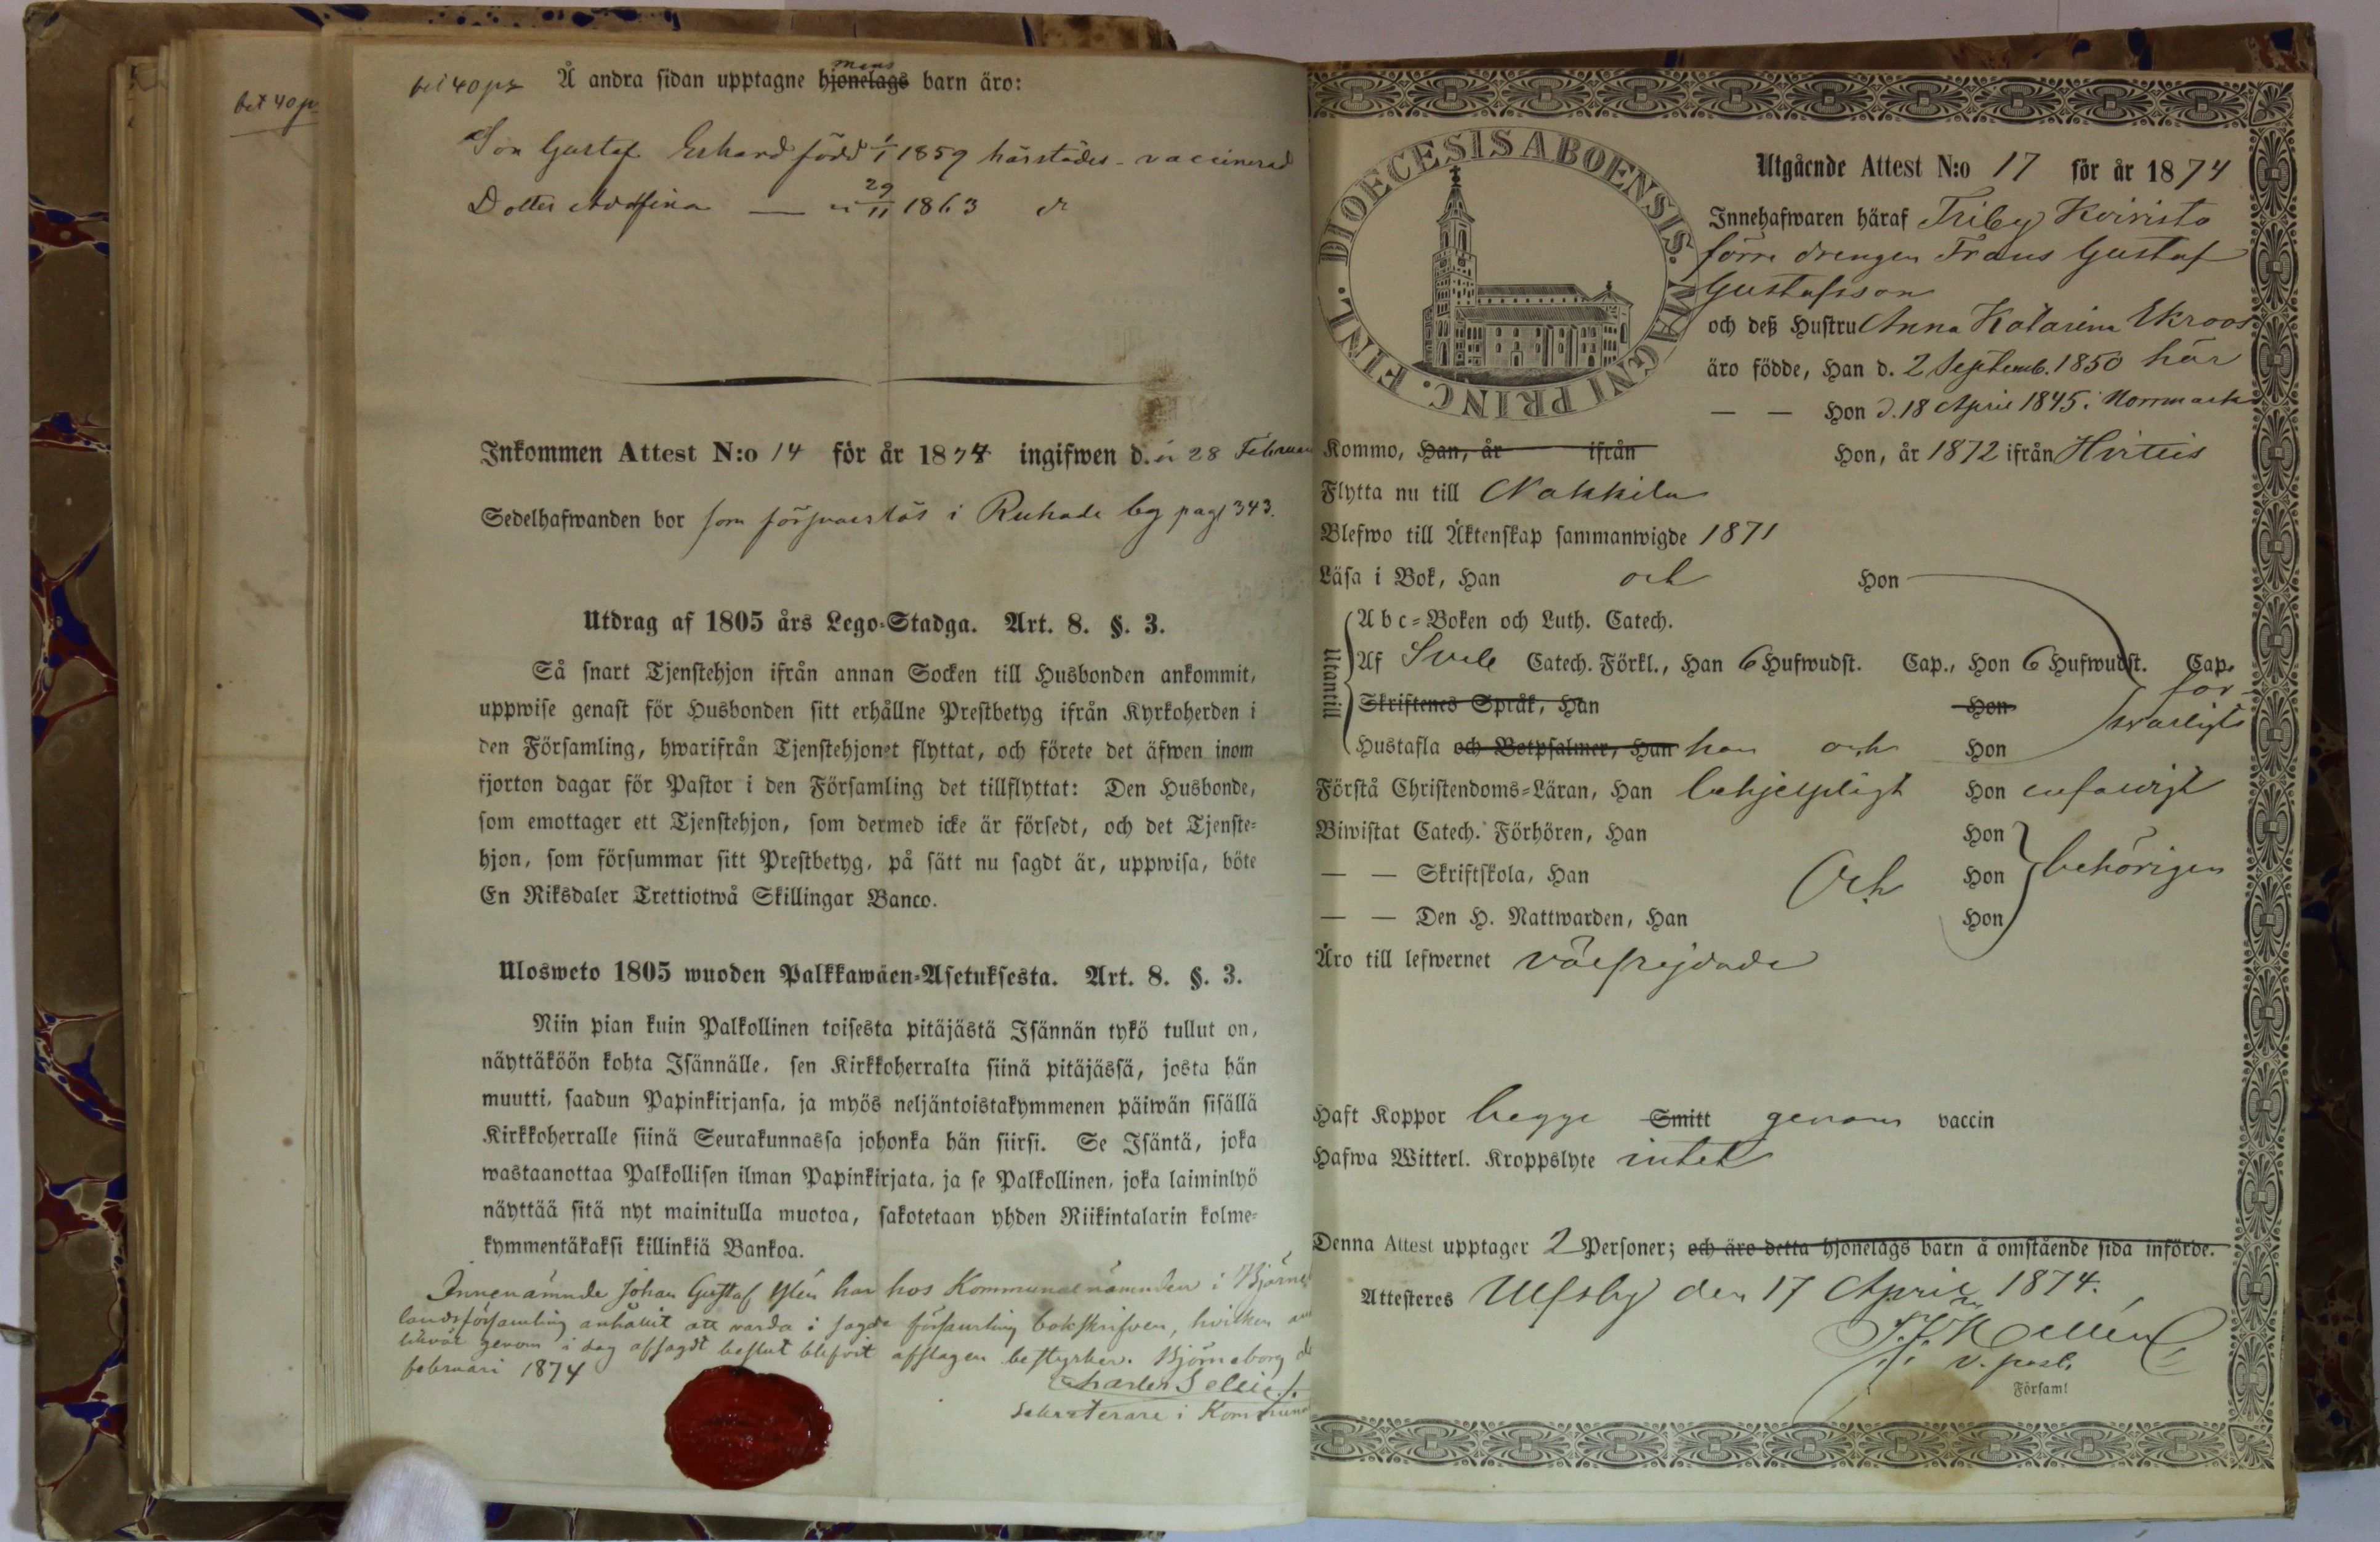 bet 40 p
bet 40 pr Å andra sidan upptagne hjonelags mans barn äro:
Son Gustaf Erhard född 1/1 1859 härstädes - vaccinerad
Dotter Adolfina — " 29/11 1863 dr
Inkommen Attest N:o 14 för år 1874 ingifwen d. 28 Februari
Sedelhafwanden bor som försvarslös i Ruhade by pag 343.
Utdrag af 1805 års Lego-Stadga. Art. 8. §. 3.
Så snart Tjenstehjon ifrån annan Socken till Husbonden ankommit,
uppwise genast för Husbonden sitt erhållne Prestbetyg ifrån Kyrkoherden i
den Församling, hwarifrån Tjenstehjonet flyttat, och förete det äfwen inom
fjorton dagar för Pastor i den Församling det tillflyttat: Den Husbonde,
som emottager ett Tjenstehjon, som dermed icke är försedt, och det Tjenste-
hjon, som försummar sitt Prestbetyg, på sätt nu sagdt är, uppwisa, böte
En Riksdaler Trettiotwå Skillingar Banco.
Ulosweto 1805 wuoden Palkkawäen-Asetuksesta. Art. 8. §. 3.
Niin pian kuin Palkollinen toisesta pitäjästä Isännän tykö tullut on,
näyttäköön kohta Isännälle, sen Kirkkoherralta siinä pitäjässä, josta hän
muutti, saadun Papinkirjansa, ja myös neljäntoistakymmenen päiwän sisällä
Kirkkoherralle siinä Seurakunnassa johonka hän siirsi. Se Isäntä, joka
wastaanottaa Palkollisen ilman Papinkirjata, ja se Palkollinen, joka laiminlyö
näyttää sitä nyt mainitulla muotoa, sakotetaan yhden Riikintalarin kolme-
kymmentäkaksi killinkiä Bankoa.
Innenämnde Johan Gustaf Ylén har hos Kommunalnämnden i Björne
landsförsamling anhållit att varda i sagde församling bokskrifven, hvilken an
likväl genom i dag afsagdt beslut blifvit afslagen bestyrker. Björneborg d
februari 1874
Charles Sellie
Sekreterare i Kommunal
DIOECESIS ABOENSIS. MAGNI PRINC. FINL.
Utgående Attest N:o 17 för år 1874
Innehafwaren häraf Friby Koivisto
förre drengen Frans Gustaf
Gustafsson
och deß Hustru Anna Katarina Ekroos
äro födde, Han d. 2 Septemb. 1850 här
— — Hon d. 18 April 1845 i Norrmark
Kommo, Han, år ifrån Hon, år 1872 ifrån Hvittis
Flytta nu till Nakkila
Blefwo till Äktenskap sammanwigde 1871
Läsa i Bok, Han och Hon
Utantill
Abc-Boken och Luth. Catech.
Af Sveb Catech. Förkl., Han 6 Hufwudst. Cap., Hon 6 Hufwudst. Cap.
Skriftenes Språk, Han Hon
för-
svarligt
Hustafla och Botpsalmer, Han han och Hon
Förstå Christendoms-Läran, Han behjelpligt Hon enfaldigt
Biwistat Catech. Förhören, Han Hon
— — Skriftskola, Han Och Hon behörigen
— — Den H. Nattwarden, Han Hon
Äro till lefwernet välfrejdade
Haft Koppor begge Smitt genom vaccin
Hafwa Witterl. Kroppslyte intet
Denna Attest upptager 2 Personer; och äro detta hjonelags barn å omstående sida införde.
Attesteres Ulfsby den 17 April 1874.
v. past.
Församl